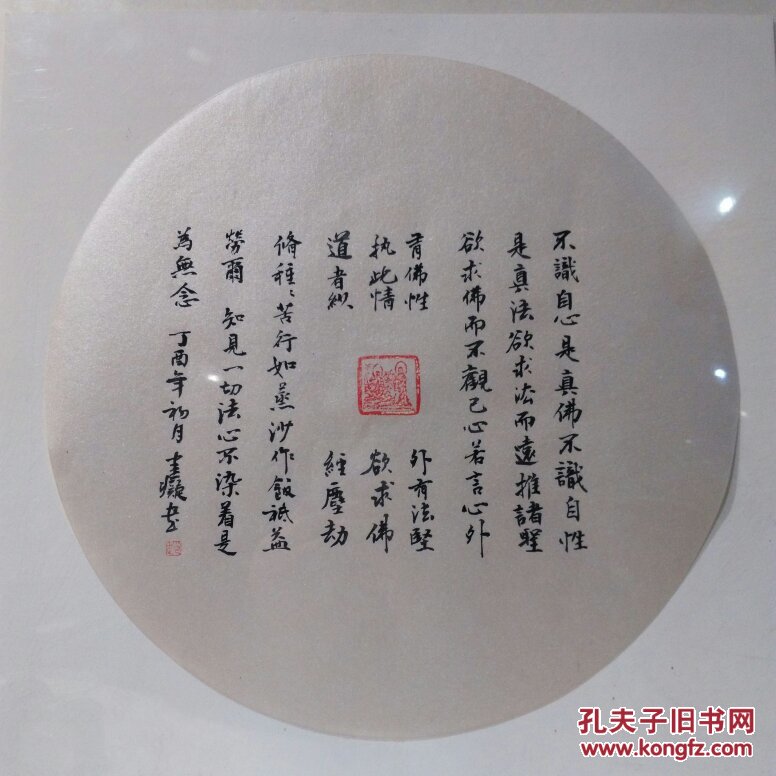 不識自心是真佛不識自性
是真法欲求法而遠推諸聖
欲求佛而不觀己心若言心外
有佛性 外有法堅
执此情 欲求佛
道者纵 經塵劫
脩種々苦行如蒸沙作飯祗益
勞爾 知見一切法心不染着是
為無念 丁酉年初月
孔夫子旧书网
www.kongfz.com